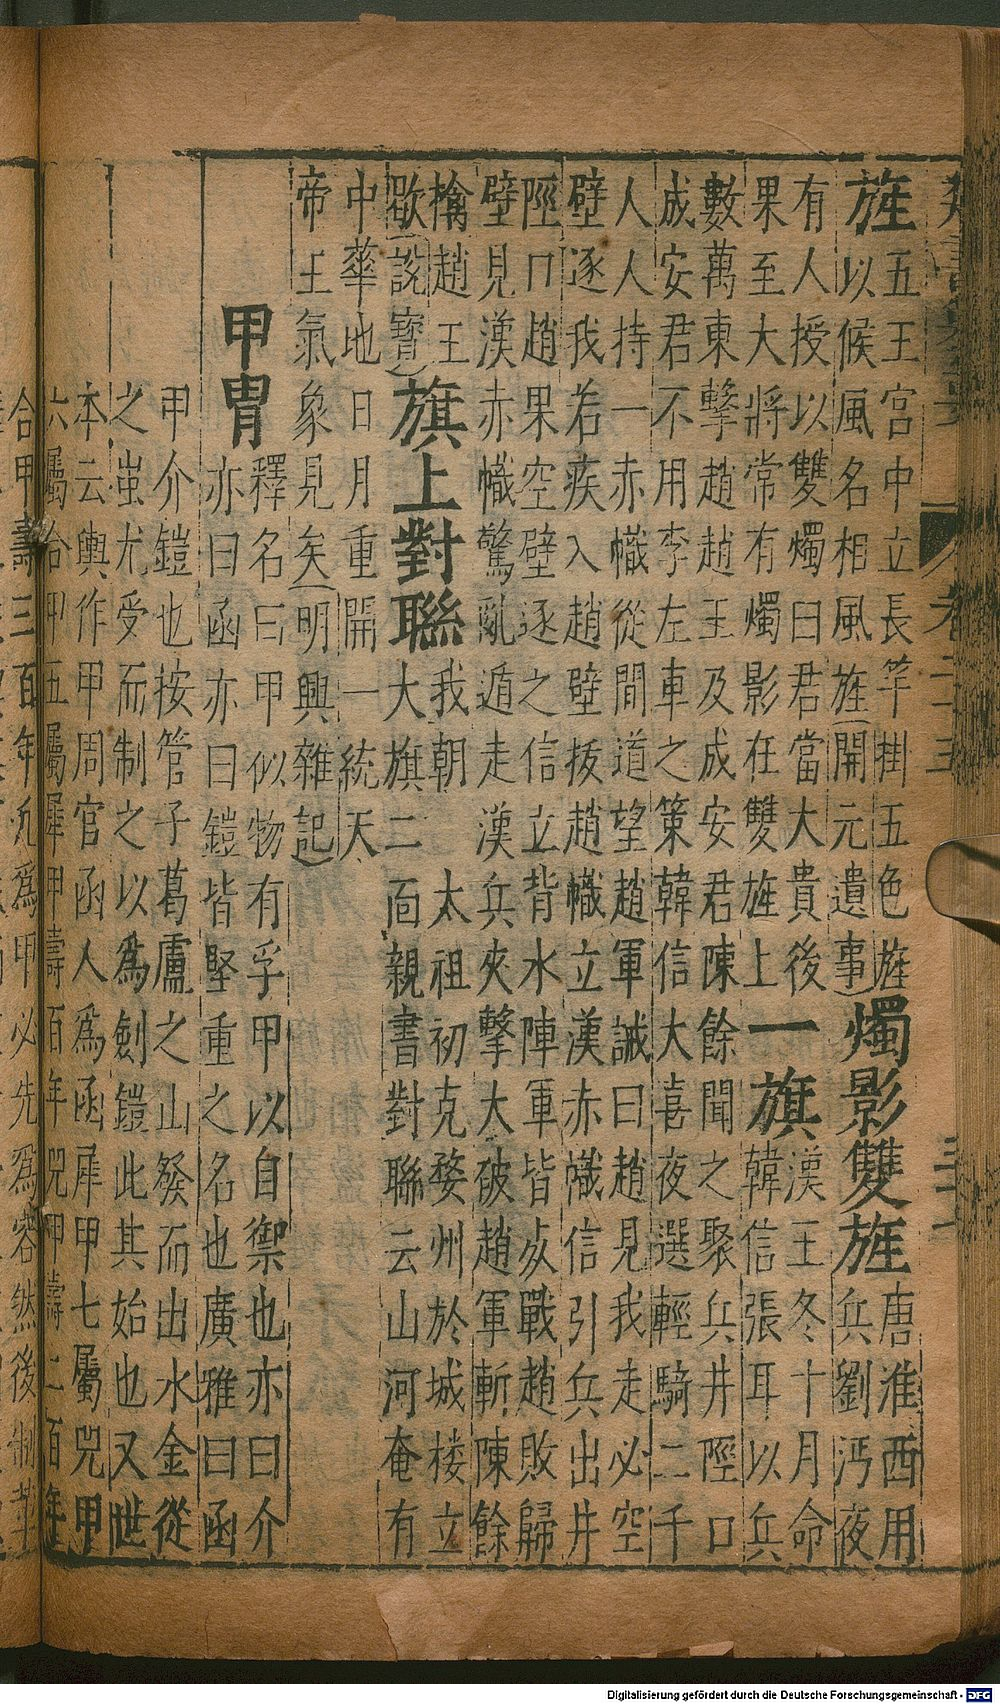 卷二十五
旌五王宮中立長竿掛五色旌
以候風名相風旌(開元遺事)燭影雙旌唐淮西用
兵劉沔夜
有人授以雙燭曰君當大貴後
果至大將常有燭影在雙旌上一旗漢王冬十月命
韓信張耳以兵
數萬東擊趙趙王及成安君陳餘聞之聚兵井陘口
成安君不用李左車之策韓信大喜夜選輕騎二千
人人持一赤幟從間道望趙軍誡曰趙見我走必空
壁逐我若疾入趙壁拔趙幟立漢赤幟信引兵出井
陘口趙果空壁逐之信立背水陣軍皆殊戰趙敗歸
壁見漢赤幟驚亂遁走漢兵夾擊大破趙軍斬陳餘
擒趙王
歇(說寶)旗上對聯我朝 太祖初克婺州於城楼立
大旗二面親書對聯云山河奄有
中華地日月重開一統天
帝王氣象見矣(明興雜記)
甲冑釋名曰甲似物有孚甲以自禦也亦曰介
亦曰函亦曰鎧皆堅重之名也廣雅曰函
甲介鎧也按管子葛盧之山發而出水金從
之蚩尤受而制之以爲劍鎧此其始也又世
本云輿作甲周官函人爲函犀甲七屬兕甲
六屬合甲五屬犀甲壽百年兕甲壽二百年
合甲壽三百年凡爲甲必先爲容然後制革
Digitalisierung gefördert durch die Deutsche Forschungsgemeinschaft - DFG